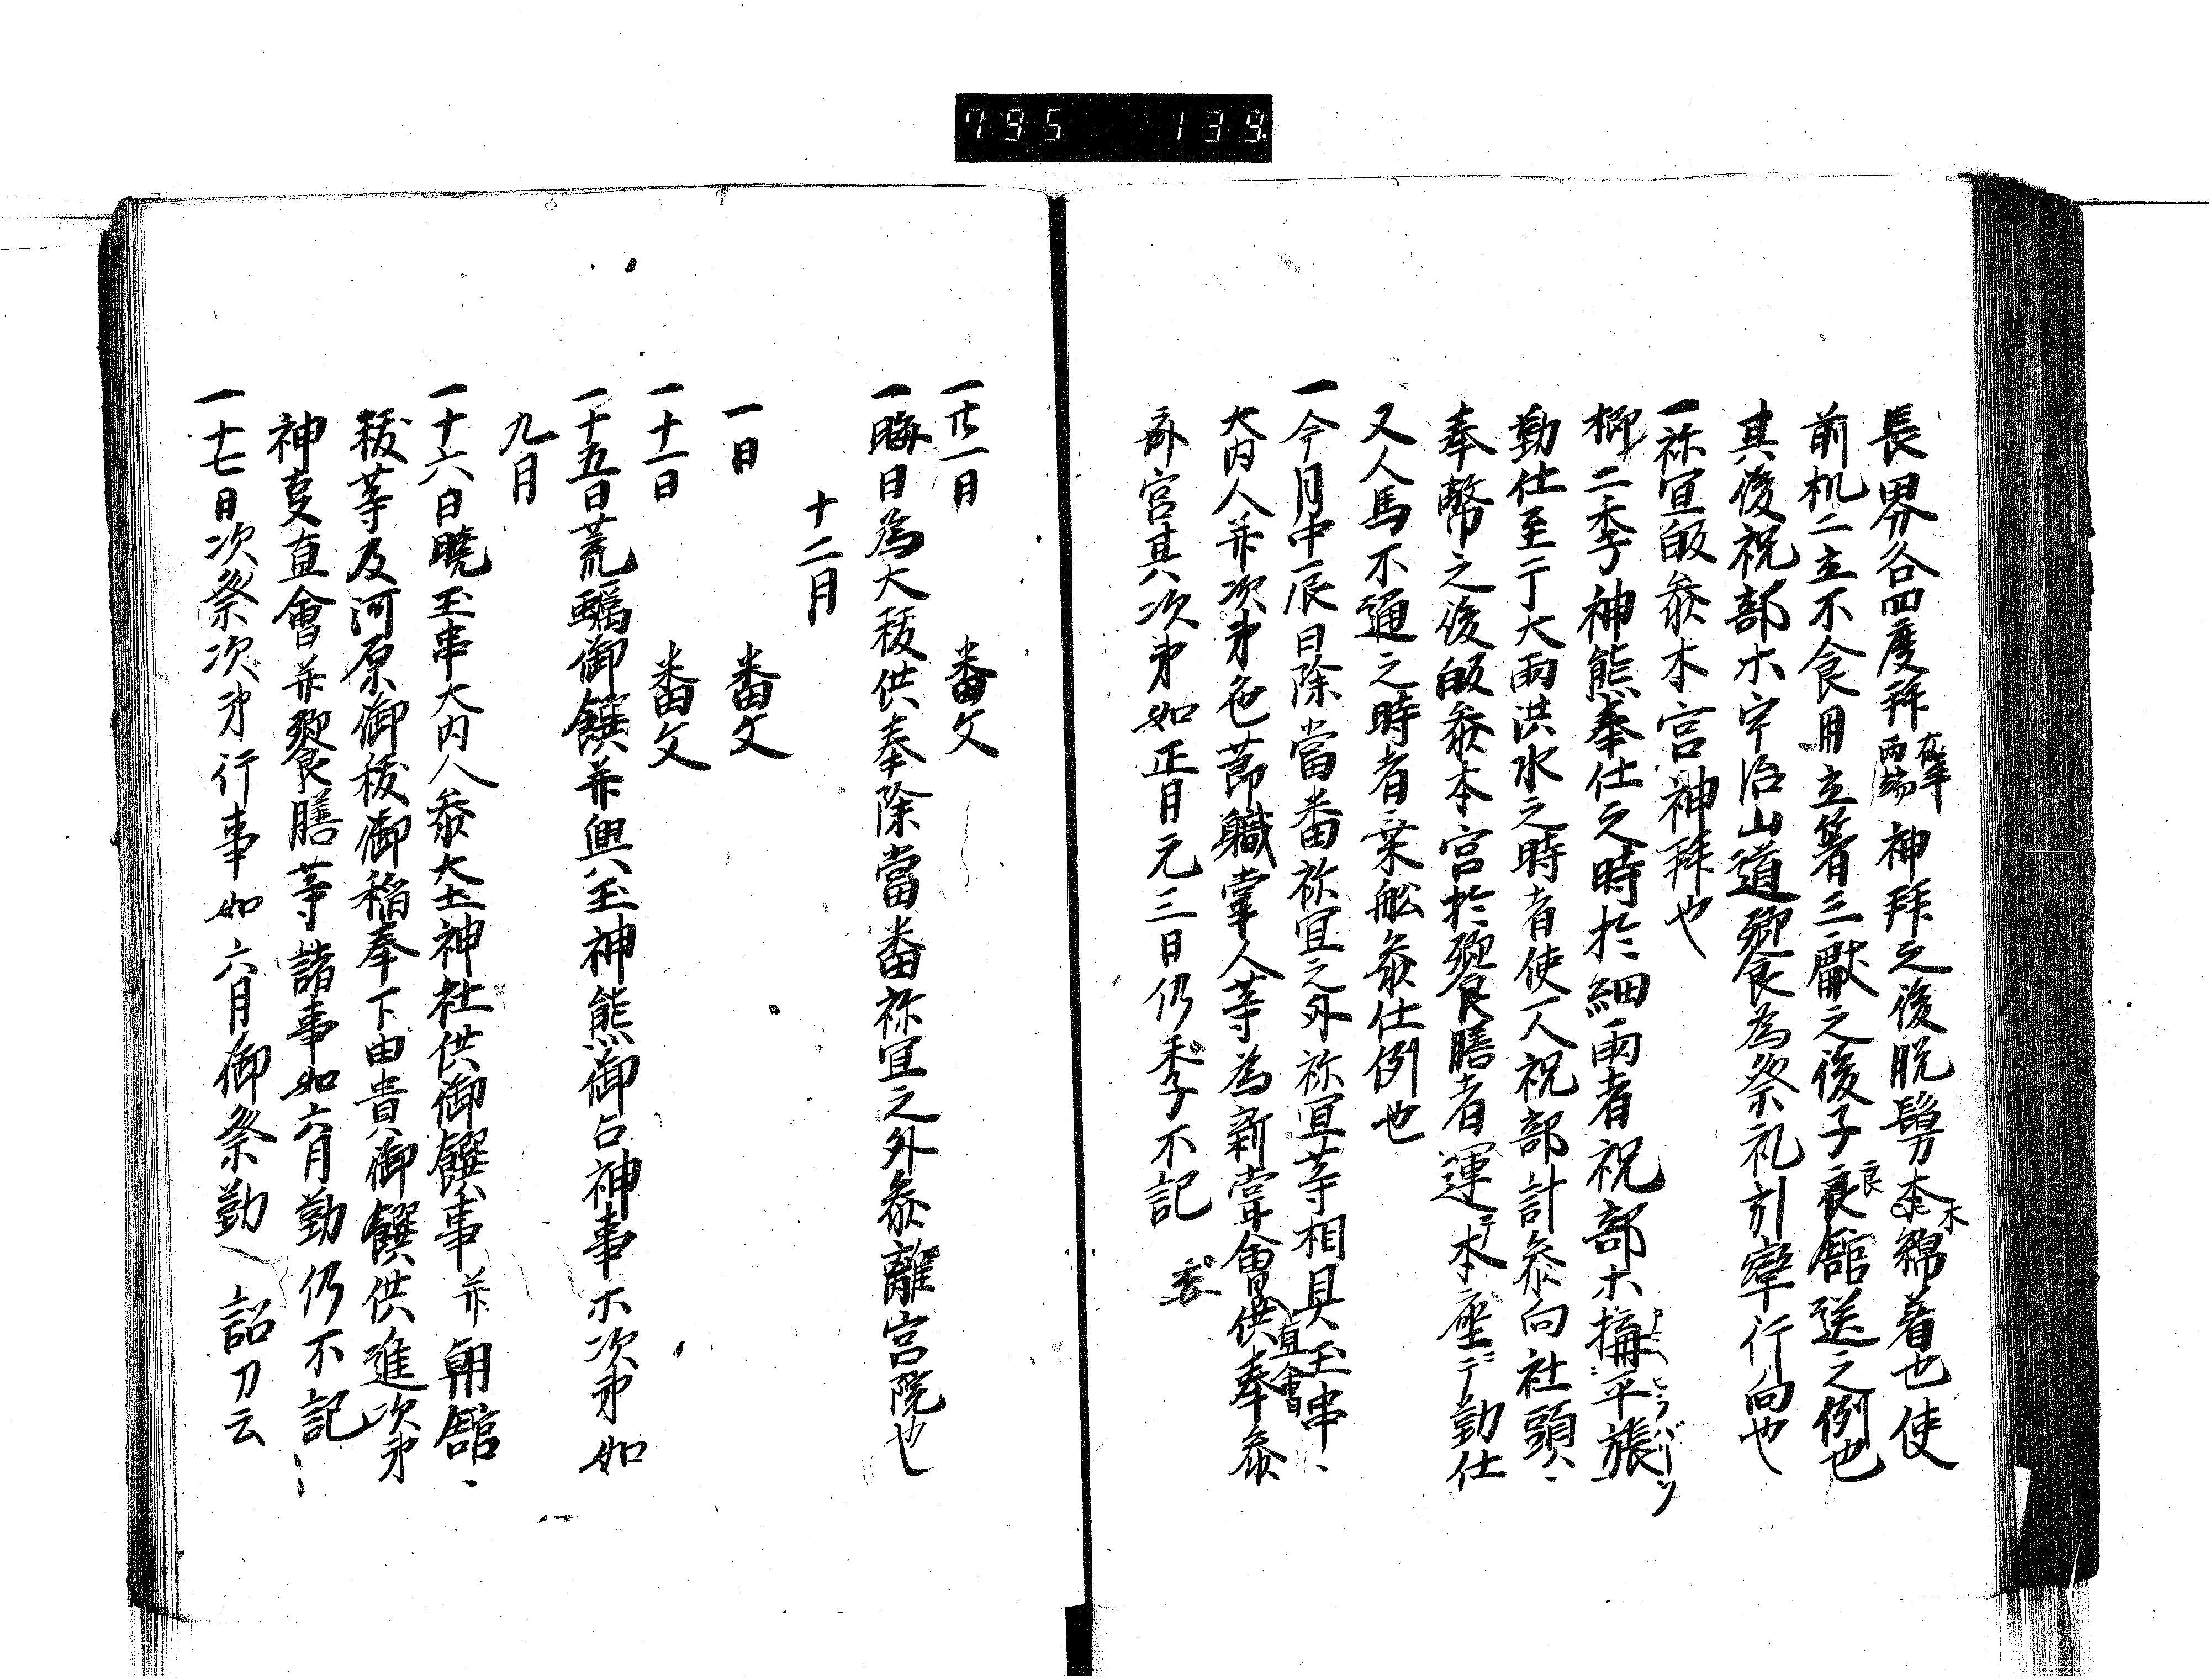 795 139
長界各四度拜在手両端神拜之後脱鬘木綿着也使
前机二立不食用立箸三獻之後子良舘送之例也
其後祝部木宇治山道郷食為祭礼刻窂行向也
一祢宜皈叅本宮神拜也
櫛二季神態奉仕之時於細雨者祝部木擶平張
勤仕至于大雨洪水之時者使一人祝部計叅向社頭、
奉幣之後皈叅本宮於饗膳者運テ本座ニテ勤仕
又人馬不通之時者棄舩叅仕例也
一今月中辰日除當番祢宜之外祢宜等相具玉串、
大内人并次第色節職掌人等為新甞會直會供奉叅
斎宮其次第如正月元三日仍委不記
一廿一日 番文
一晦日為大祓供奉除當番祢宜之外叅離宮院也
十二月
一日 番文
一十一日 番文
一十五日荒蠣御饌并興玉神態御占神事木次第如
九月
一十六日暁玉串大内人叅大土神社供御饌事并朝舘、
祓等及河原御祓御稲奉下由貴御饌供進次第
神㕝直會并饗膳等諸事如六月勤仍不記
一十七日次祭次第行事如六月御祭勤 詔刀云